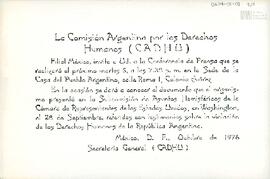 La Comisión Argentina por los Derechos
Humanos (CADHU)
Filial México, invita a Ud. a la Conferencia de Prensa que se
realizará el próximo martes 5, a las 7.30 p.m. en la Sede de la
Casa del Pueblo Argentino, de Roma 1, Colonia Juárez.
En la ocasión se dará a conocer el documento que el organismo
presentó en la Subcomisión de Asuntos Hemisféricos de la
Cámara de Representantes de los Estados Unidos, en Washington,
el 28 de Septiembre, referidos con testimonios sobre la violación
de los Derechos Humanos de la República Argentina.
México, D. F., octubre de 1976
Secretaría General (CADHU)